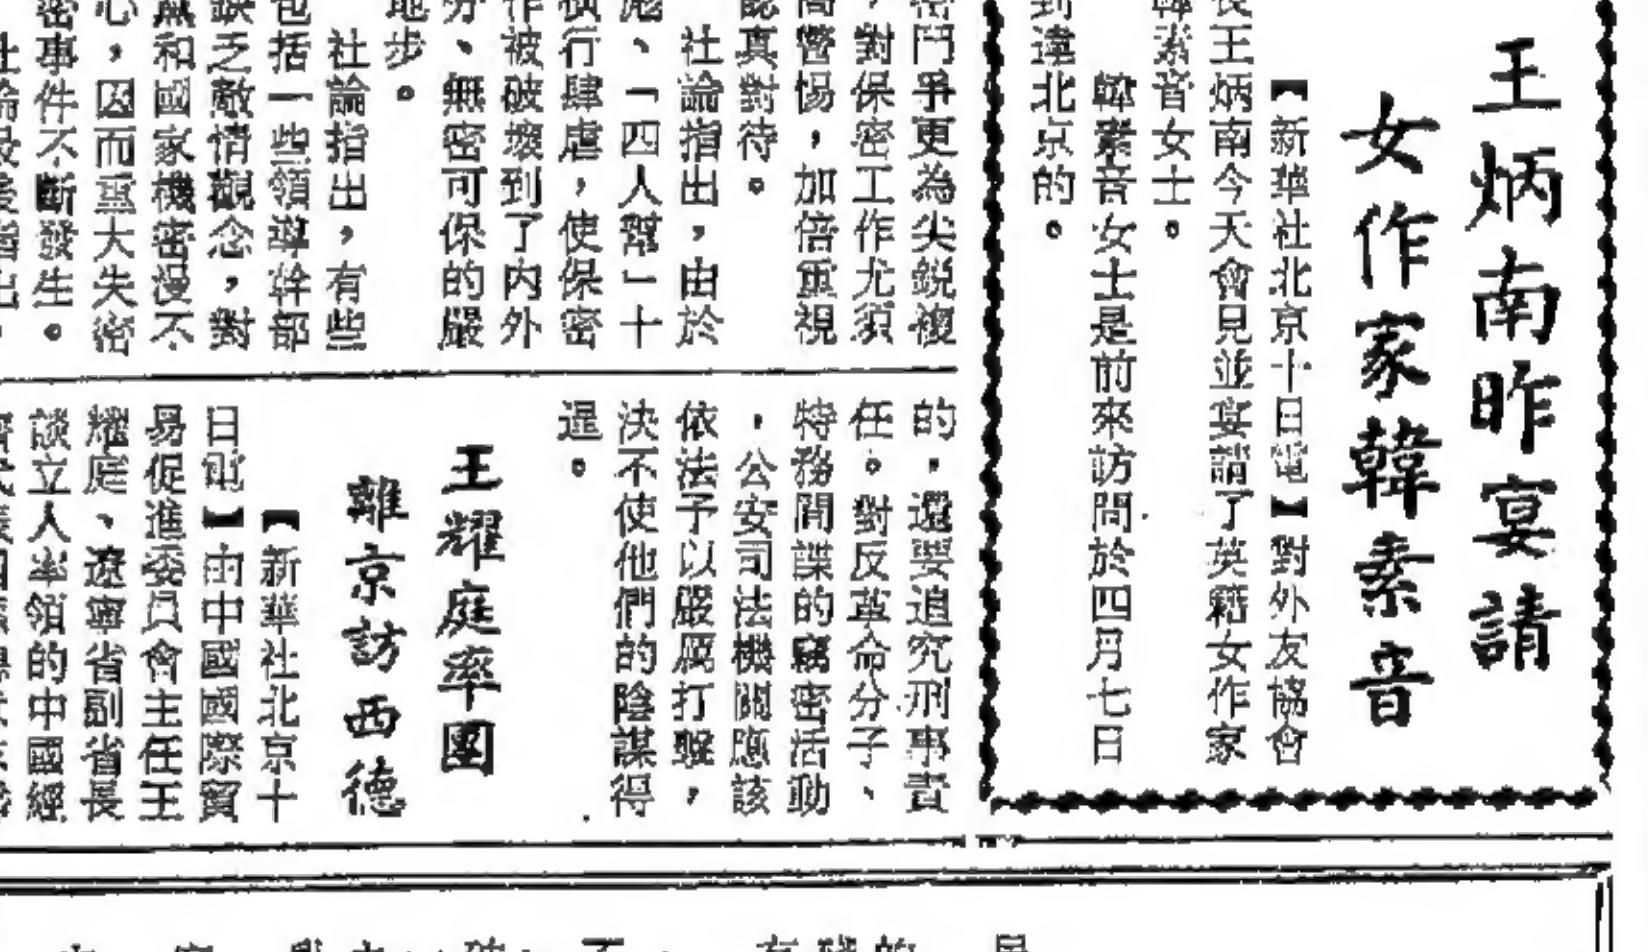 王炳南昨宴請
女作家韓素音
【新華社北京十日電】對外友協會
長王炳南今天會見並宴請了英籍女作家
韓素音女士。
韓素音女士是前來訪問於四月七日
到達北京的。
密鬥爭更為尖銳複
，對保密工作尤須
高警惕，加倍重視
認真對待。
社論指出，由於
彪、「四人幫」十
橫行肆虐，使保密
作被破壞到了內外
分、無密可保的嚴
地步。
社論指出，有些
包括一些領導幹部
誤乏敵情觀念，對
黨和國家機密漫不
心，因而重大失密
密事件不斷發生。
社論最後指出，
的，還要追究刑事責
任。對反革命分子、
特務間諜的竊密活動
，公安司法機關應該
依法予以嚴厲打擊，
決不使他們的陰謀得
逞。
王耀庭率團
離京訪西德
【新華社北京十
日電】由中國國際貿
易促進委員會主任王
耀庭、遼寧省副省長
談立人率領的中國經